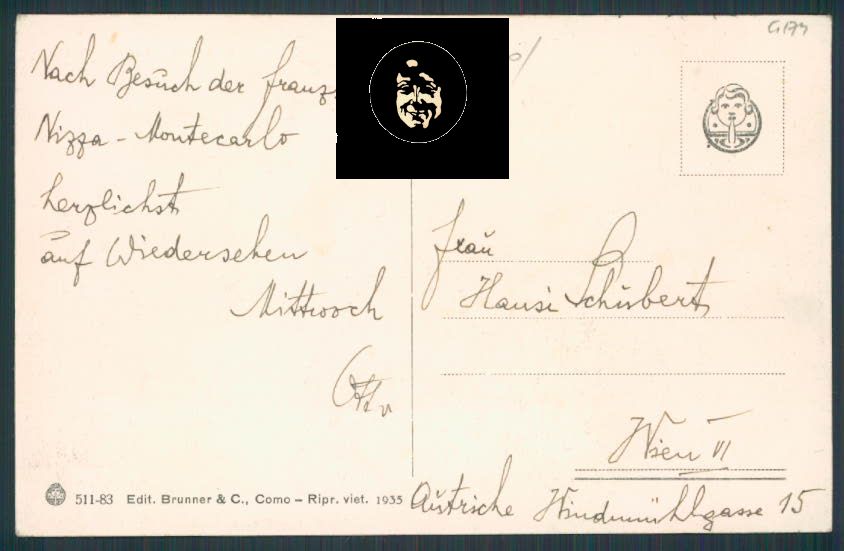 G174
Nach Besuch der franz.
Nizza - Montecarlo
herzlichst
auf Wiedersehen
Mittwoch
Otto
Frau
Hansi Schubert
Wien VI
Autriche Windmühlgasse 15
511-83 Edit. Brunner & C., Como – Ripr. viet. 1935